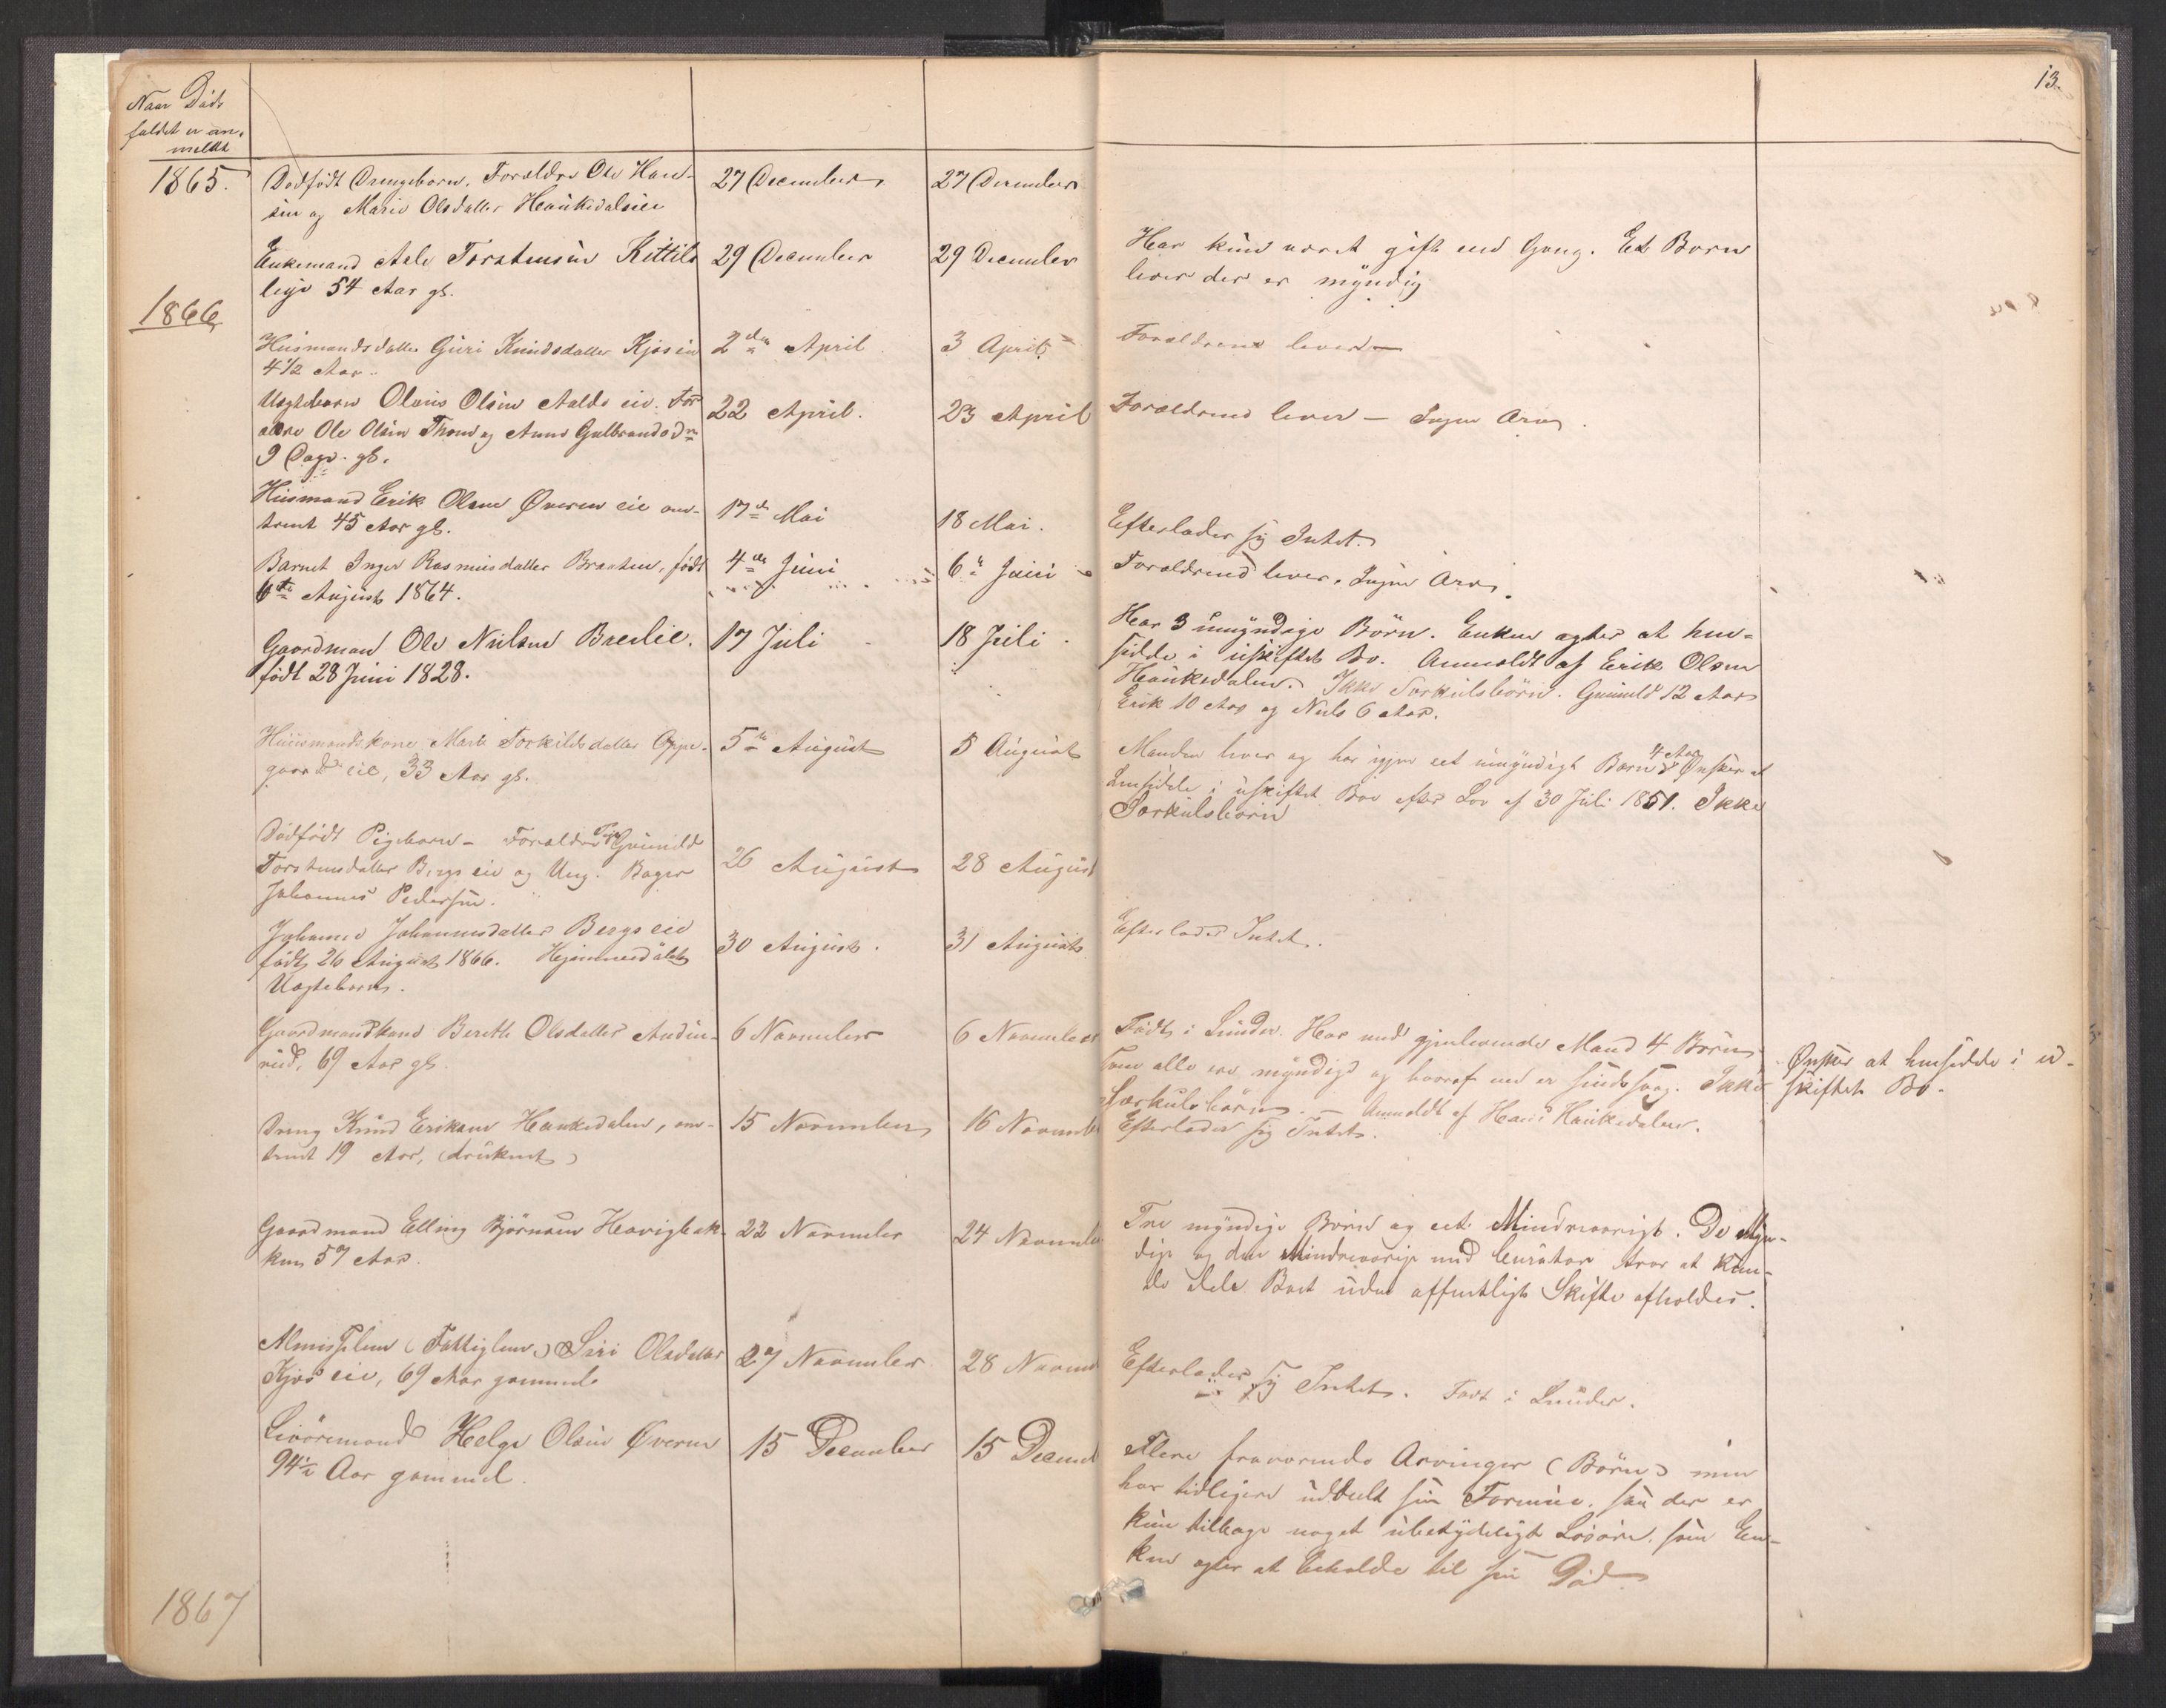 13.
Naar Døds
faldet er an-
meldt
1865.
Dødfødt Drengebarn. Forældre Ole Han-
sen og Marie Olsdatter Haukedalseie
27 December
27 December
Enkemand Asle Torstensen Kittils
leye 54 Aar gl.
29 December
29 December
Har kun været gift een Gang. Et Barn
lever der er myndig
1866
Husmandsdatter Guri Knudsdatter Kjøseie
4 1/2 Aar.
2den April
3 April
Forældrene lever
Uægtebarn Olaus Olsen Aalde eie. For
ældre Ole Olsen Thon og Anne Gulbrandsdr
9 Dage gl.
22 April.
23 April
Forældrene lever - Ingen Arv.
Husmand Erik Olsen Øveren eie om-
trent 45 Aar gl.
17de Mai
18 Mai.
Efterlader sig Intet.
Barnet Inger Rasmusdatter Braaten, født
6te August 1864.
4de Juni
6te Juni
Forældrene lever. Ingen Arv.
Gaardmand Ole Nielsen Brelie.
født 28 Juni 1828.
17 Juli
18 Juli
Har 3 umyndige Börn. Enken agter at hen-
sidde i uskiftet Bo. Anmeldt af Erik Olsen
Haukedalen. Ikke Særkulsbörn. Gunild 12 Aar
Erik 10 Aar og Niels 6 Aar.
Huusmandskone Marte Torkildsdatter Oppe-
gaards eie, 33 Aar gl.
5te August
5 August
Manden lever og har igjen eet umyndigt Barn 4 Aar Ønsker at
hensidde i uskiftet Bo efter Lov af 30 Juli 1851. Ikke
Særkulsbörn
Dødfødt Pigebarn - Forældre Pige Gunild
Torstensdatter Bergs eie og Ung. Bager
Johannes Pedersen.
26 August
28 August
Johanne Johannesdatter Bergs eie
født 26 August 1866. Hjemmedöbt
Uægtebarn.
30 August.
31 August
Efterlader Intet.
Gaardmandskone Berethe Olsdatter Audun-
rud, 69 Aar gl.
6 November
6 November
Født i Sunder. Har med gjenlevende Mand 4 Börn
som alle ere myndige og hvoraf een er sindssvag. Ikke
Særkulsbörn. - Anmeldt af Hans Haukedalen.
Ønsker at hensidde i u-
skiftet Bo.
Dreng Knud Eriksen Haukedalen, om-
trent 19 Aar, (druknet)
15 November
16 Novemb
Efterlader sig Intet.
Gaardmand Elling Björnsen Haavigbak-
ken 57 Aar.
22 November
24 November
Tre myndige Börn og eet Mindreaarigt. De Myn-
dige og den Mindreaarige med Curator tror at kun-
de dele Boet uden offentligt Skifte afholdes.
Almisselem (Fattiglem) Siri Olsdatter
Kjøs eie, 69 Aar gammel
27 November
28 Novem
Efterlader sig Intet. Født i Sunder.
Livöremand Helge Olsen Øveren
94 1/2 Aar gammel.
15 December
15 Decemb
Flere fraværende Arvinger (Börn) men
har tidligere uddeelt sin Formue, saa der er
kun tilbage noget ubetydeligt Lösöre, som En-
ken agter at beholde til sin Död
1867